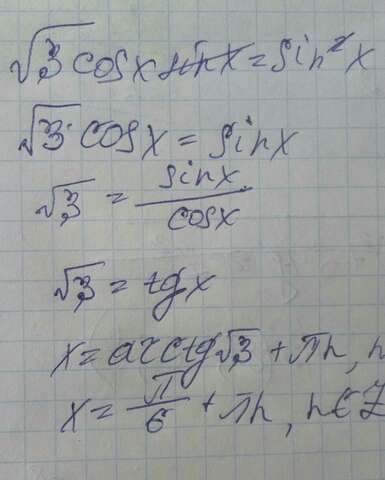 √3 cosx sinx = sin²x
√3 · cosx = sinx
√3 = sinx/cosx
√3 = tgx
x = arcctg√3 + πn, n
x = π/6 + πn, n∈Z